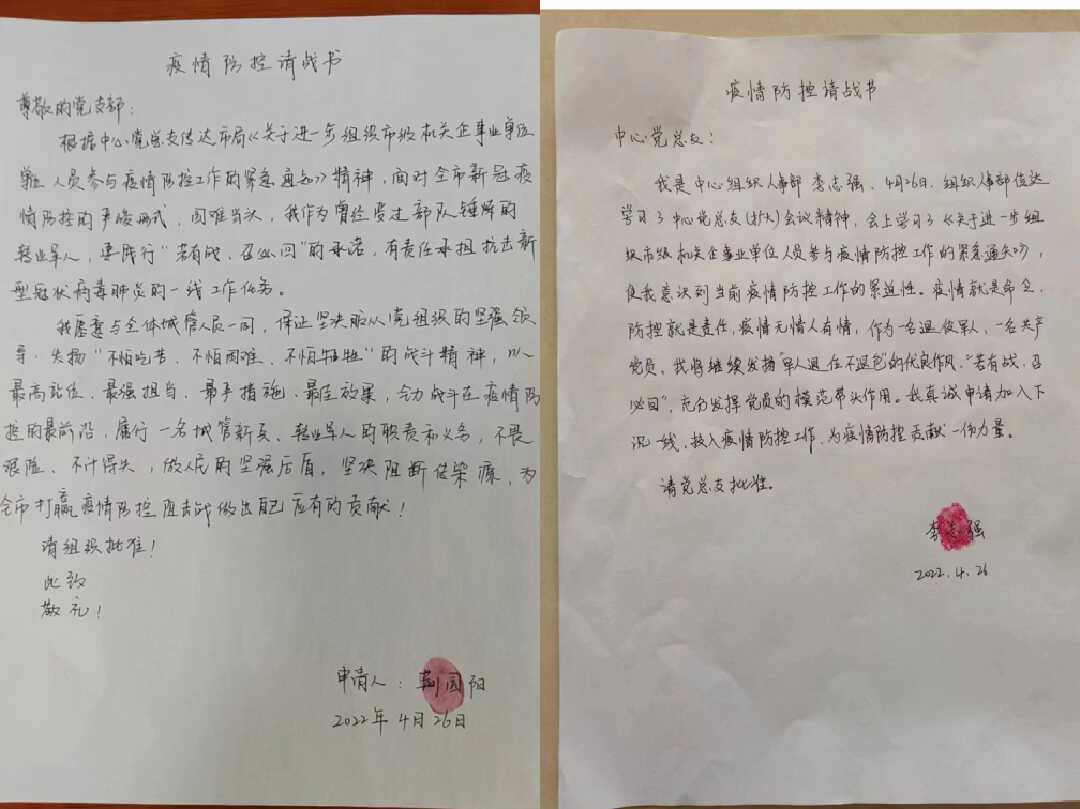 疫情防控请战书
尊敬的党支部：
根据中心党总支传达市局《关于进一步组织市级机关企事业单位
人员参与疫情防控工作的紧急通知》精神，面对全市新冠疫
情防控的严峻形式，困难当头，我作为曾经受过部队锤炼的
转业军人，要践行“若有战、召必回”的承诺，有责任承担抗击新
型冠状病毒肺炎的一线工作任务。
我愿意与全体城管人员一同，保证坚决服从党组织的坚强领
导，发扬“不怕吃苦、不怕困难、不怕牺牲”的战斗精神，以
最高站位、最强担当、最严措施、最佳效果，全力战斗在疫情防
控的最前沿，履行一名城管新兵、转业军人的职责和义务，不畏
艰险、不计得失，做人民的坚强后盾。坚决阻断传染源，为
全市打赢疫情防控阻击战做出自己应有的贡献！
请组织批准！
此致
敬礼！
申请人：国阳
2022年4月26日
疫情防控请战书
中心党总支：
我是中心组织人事部李志强，4月26日，组织人事部传达
学习了中心党总支（扩大）会议精神，会上学习了《关于进一步组
织市级机关企事业单位人员参与疫情防控工作的紧急通知》，
使我意识到当前疫情防控工作的紧迫性。疫情就是命令，
防控就是责任，疫情无情人有情，作为一名退役军人，一名共产
党员，我将继续发扬“军人退伍不退色”的优良作风，“若有战，召
必回”，充分发挥党员的模范带头作用。我真诚申请加入下
沉一线，投入疫情防控工作，为疫情防控贡献一份力量。
请党总支批准。
李志强
2022.4.26